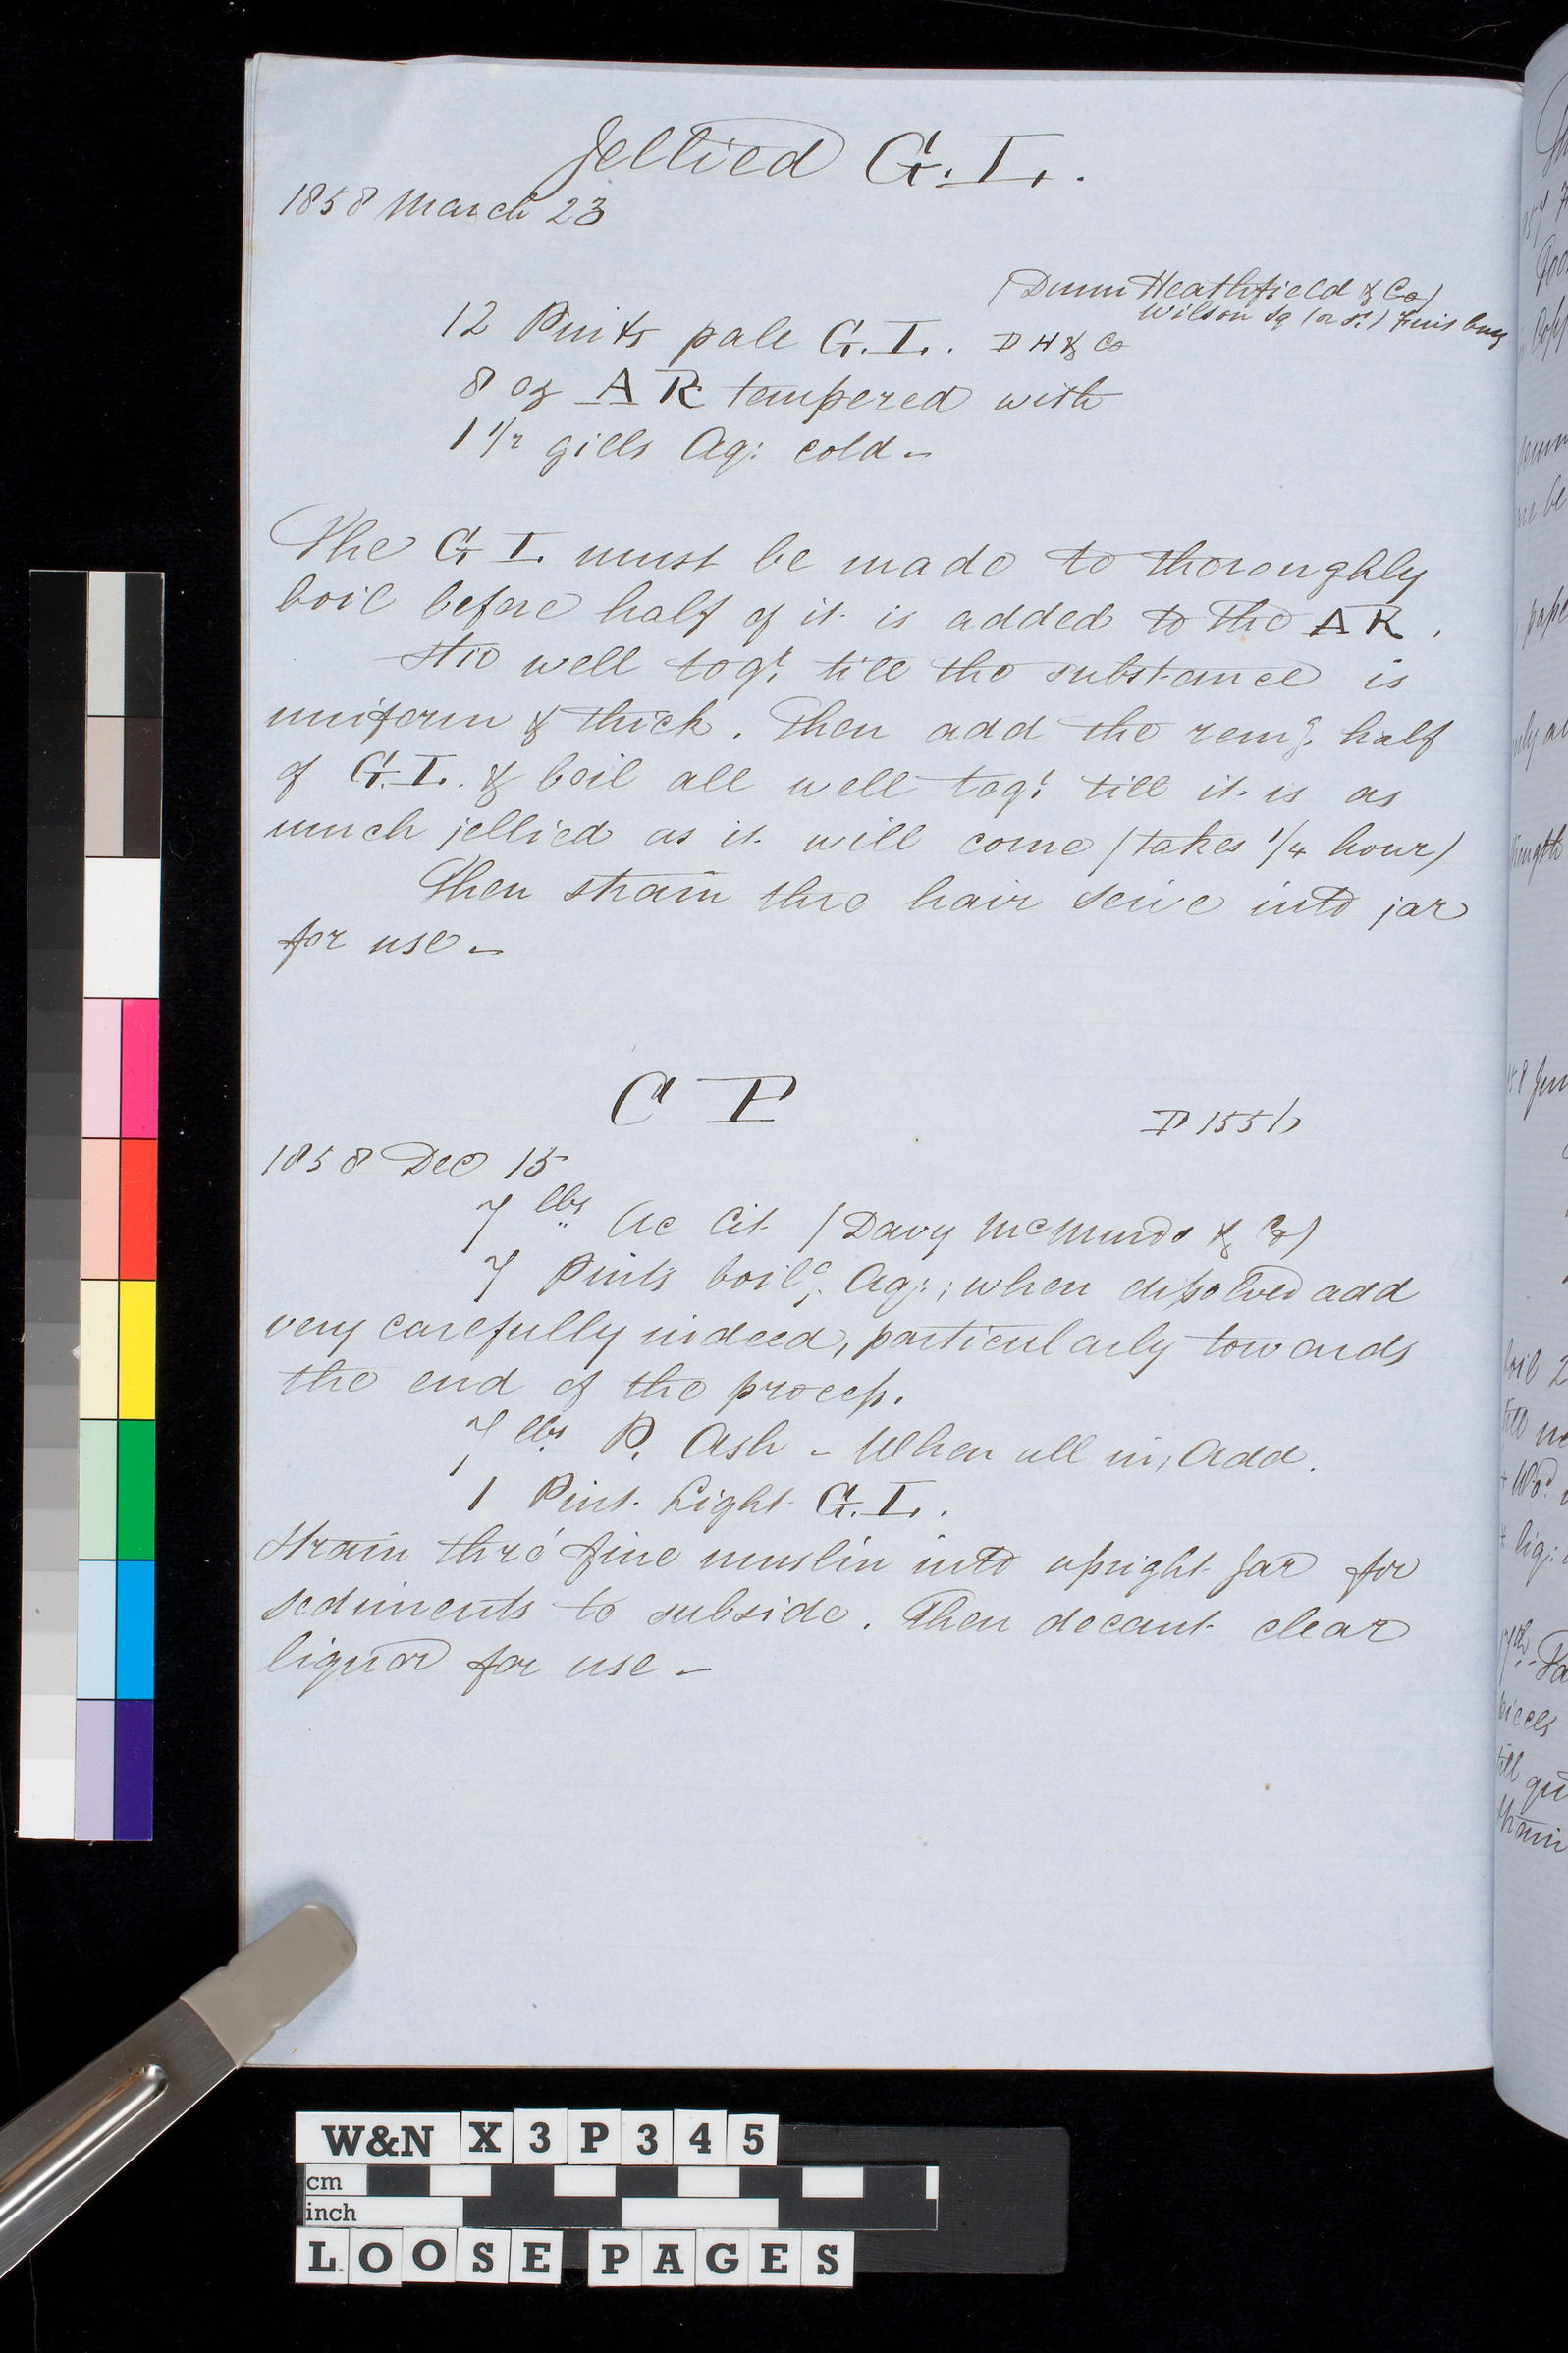 Jellied G.I.
1858 March 23
(Dunn Heathfield & Co)
Wilson Sq (or St) Finsbury
12 Pints pale G.I. D H & Co
8 oz A R tempered with
1 1/2 gills Aq: cold -
The G I. must be made to thoroughly
boil before half of it is added to the A R.
Stir well togr. till the substance is
uniform & thick. Then add the remg. half
of G.I. & boil all well togr. till it is as
much jellied as it will come (takes 1/4 hour)
Then strain thro hair seive into jar
for use -
C P
P 155/
1858 Dec 15
7 lbs Ac Cit (Davy McMurdo & Co)
7 Pints boilg. Aq:; when dissolved add
very carefully indeed, particularly towards
the end of the process.
7 lbs P. Ash - When all in, Add.
1 Pint Light G.I.
Strain thro' fine muslin into upright Jar for
sediments to subside. Then decant clear
liquor for use -
W&N X3P345
cm
inch
LOOSE PAGES